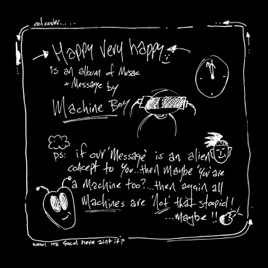 cd cover....
Happy very happy
is an album of Music
+ Message by
Machine Boy
ps: if our 'Message' is an alien
concept to you...then maybe you are
a Machine too?...then again all
Machines are 'Not' that stupid!
...Maybe!!
good here aint it?